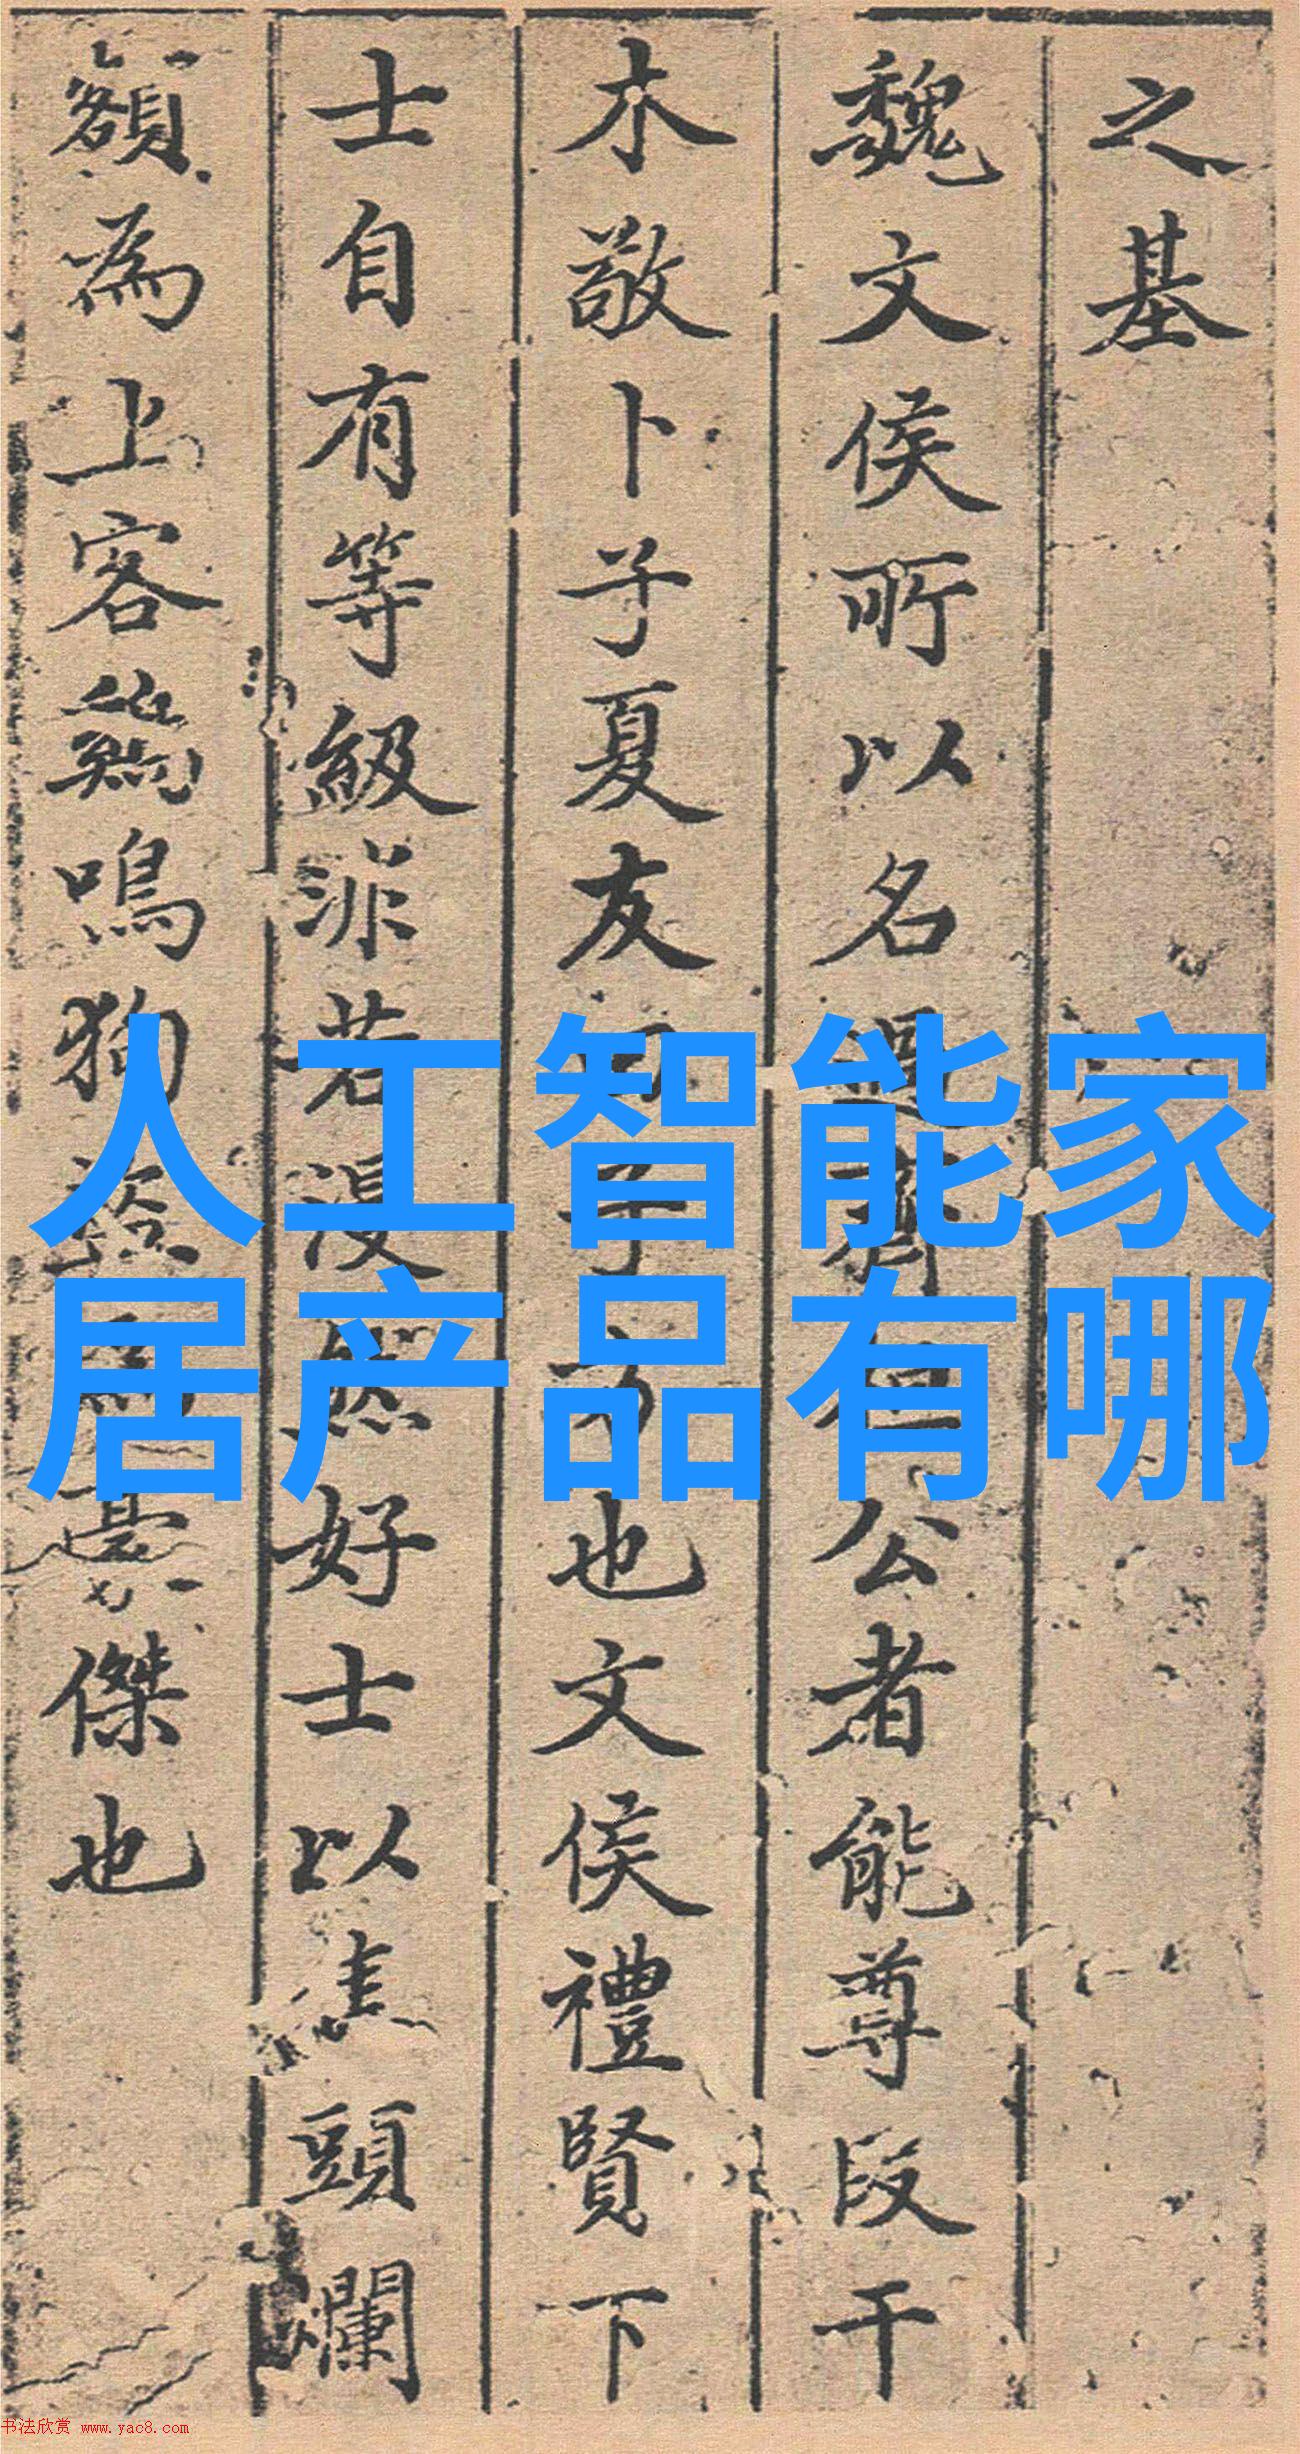 之基
魏文侯所以名過齊桓公者能尊段干
木敬卜子夏友田子方也文侯禮賢下
士自有等級非若漫然好士以焦頭爛
額為上客雞鳴狗盜為豪傑也
人工智能家
居产品有哪
书法欣赏 www.yac8.com